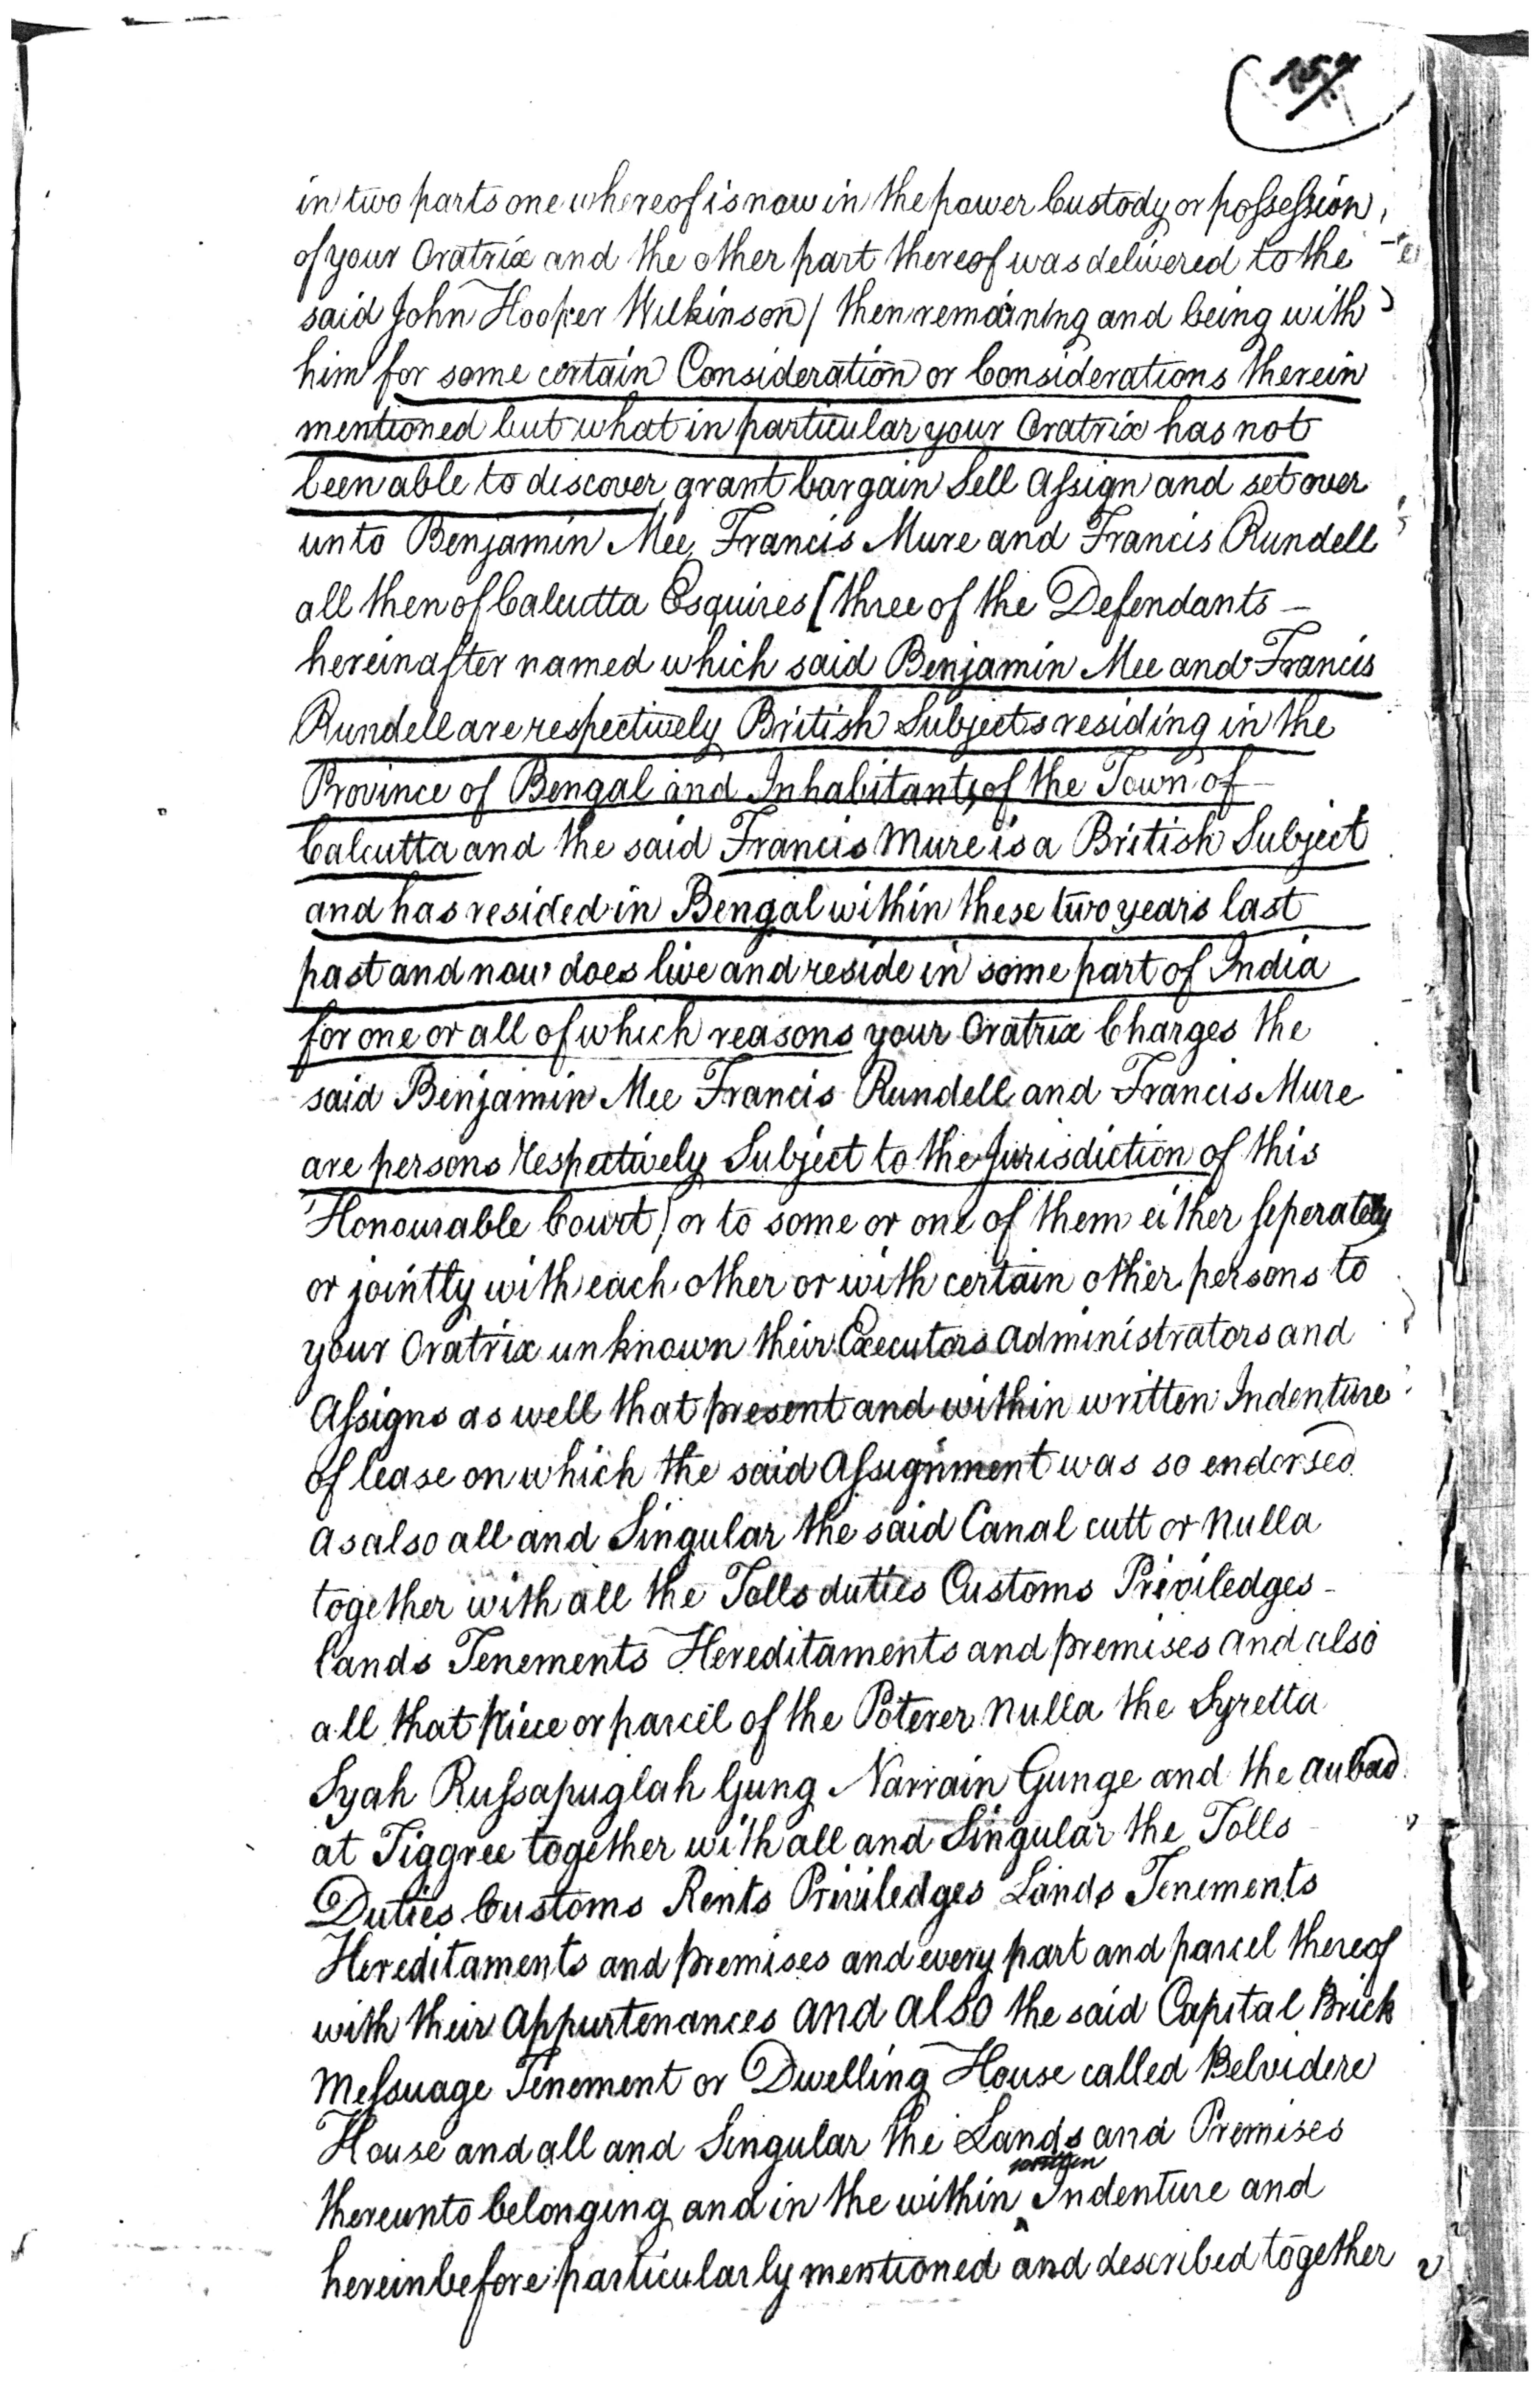 in two parts one whereof is now in the power Custody or possession
of your Oratrix and the other part thereof was delivered to the
said John Hooper Wilkinson / then remaining and being with
him for some certain Consideration or Considerations therein
mentioned but what in particular your Oratrix has not
been able to discover grant bargain Sell Assign and set over
unto Benjamin Mee, Francis Mure and Francis Rundell
all then of Calcutta Esquires [three of the Defendants –
hereinafter named which said Benjamin Mee and Francis
Rundell are respectively British Subjects residing in the
Province of Bengal and Inhabitants of the Town of
Calcutta and the said Francis Mure is a British Subject
and has resided in Bengal within these two years last
past and now does live and reside in some part of India
for one or all of which reasons your Oratrix Charges the
said Benjamin Mee Francis Rundell and Francis Mure
are persons respectively Subject to the Jurisdiction of this
Honourable Court / or to some or one of them either seperately
or jointly with each other or with certain other persons to
your Oratrix unknown their Executors Administrators and
Assigns as well that present and within written Indenture
of lease on which the said Assignment was so endorsed
as also all and Singular the said Canal cutt or Nulla
together with all the Tolls duties Customs Priviledges –
Lands Tenements Hereditaments and premises and also
all that piece or parcel of the Poterer Nulla the Syretta
Syah Russapuglah Gung Narrain Gunge and the aubad
at Tiggree together with all and Singular the Tolls
Duties Customs Rents Priviledges Lands Tenements
Hereditaments and premises and every part and parcel thereof
with their appurtenances and also the said Capital Brick
Messuage Tenement or Dwelling House called Belvidere
House and all and Singular the Lands and Premises
thereunto belonging and in the within written Indenture and
hereinbefore particularly mentioned and described together